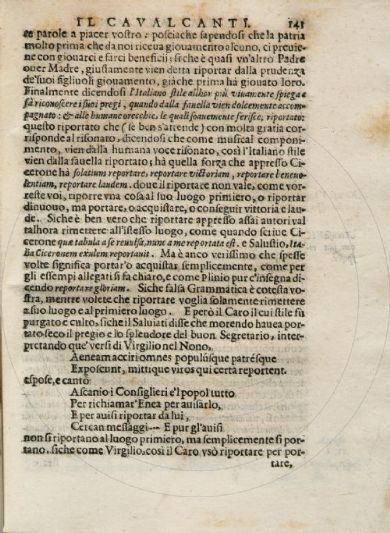 IL CAVALCANTI. 141
te parole a piacer vostro: posciache sapendosi che la patria
molto prima che da noi riceua giouamento alcuno, ci preuie
ne con giouarci e farci beneficii; si che è quasi vn'altro Padre
ouer Madre, giustamente vien detta riportar dalla prudenza
de' suoi figliuoli giouamento, giàche prima hà giouato loro.
Finalmente dicendosi l'Italiano stile allhor più viuamente spiega e
fà riconoscere i suoi pregi, quando dalla fauella vien dolcemente accom-
pagnato: & alle humane orecchie, le quali soauemente ferisce, riportato:
questo riportato che (se ben s'attende) con molta gratia corri-
sponde al risonato, dicendosi che come musical componi-
mento, vien dalla humana voce risonato, così l'Italiano stile
vien dalla fauella riportato; hà quella forza che appresso Ci-
cerone hà solatium reportare, reportare victoriam, reportare beneuo-
lentiam, reportare laudem. doue il riportare non vale, come vor-
reste voi, riporre vna cosa al suo luogo primiero, o riportar
dinuouo, ma portare, o acquistare, o conseguir vittoria e lau-
de. Siche è ben vero che riportare appresso assai autori val
talhora rimettere all'istesso luogo, come quando scriue Cice-
cerone que tabula a se reuulsa, nunc a me reportata est. e Salustio, Ita-
lia Ciceronem exulem reportauit. Ma è anco verissimo che spesse
volte significa portar'o acquistar semplicemente, come per
gli essempi allegati si chiarisce, e come Plinio pur c'insegna di-
cendo reportare gloriam. Siche falsa Grammatica è cotesta vo-
stra, mentre volete che riportare voglia solamente rimettere
a suo luogo e al primiero luogo. E però il Caro il cui stile fù
purgato e culto, siche il Saluiati disse che morendo hauea por-
tato seco il pregio e lo splendore del buon Segretario, inter-
pretando que' versi di Virgilio nel Nono.
Aeneam acciri omnes populúsque patrésque
Exposcunt, mittique viros qui certa reportent.
espose, e cantò
Ascanio i Consiglieri e'l popol tutto
Per richiamar'Enea per auisarlo,
E per auisi riportar da lui,
Cercan messaggi--- E pur gl'auisi
non si riportano al luogo primiero, ma semplicemente si por-
tano. siche come Virgilio, così il Caro vsò riportare per por-
tare,